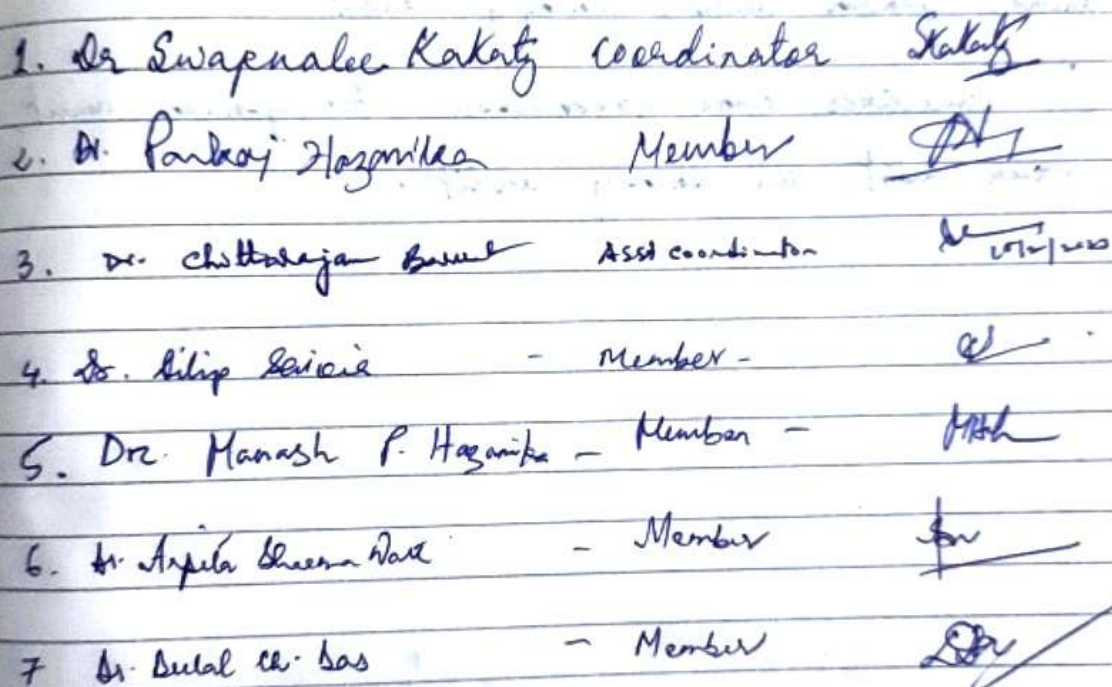 1. Dr Swapnalee Kakaty Coordinator Skakaty
2. Dr. Pankaj Hazarika Member
3. Dr. Chittaranjan Baruah Asst coordinator
4. Dr. Dilip - Member -
5. Dr. Manash P. Hazarika - Member -
6. Dr. Arpita Sharma - Member
7 Dr. Dulal Ch. Das - Member